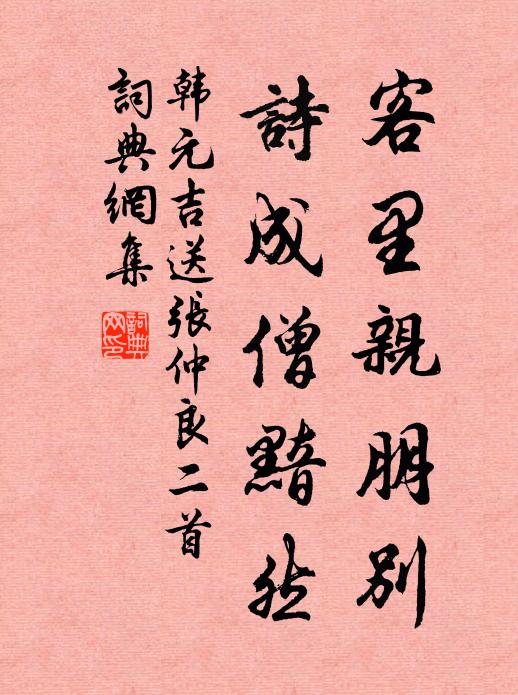 客里親朋別
詩成僧黯然
韩元吉送張仲良二首
詞典網集
詞典
网印